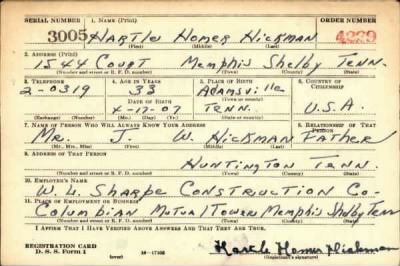 SERIAL NUMBER 1. NAME (Print) ORDER NUMBER
3005 HARTLE HOMER HICKMAN 4229
(First) (Middle) (Last)
2. ADDRESS (Print)
1544 COURT MEMPHIS SHELBY TENN.
(Number and street or R. F. D. number) (Town) (County) (State)
3. TELEPHONE 4. AGE IN YEARS 5. PLACE OF BIRTH 6. COUNTRY OF CITIZENSHIP
33 ADAMSVILLE
2-0319 DATE OF BIRTH (Town or county)
4-17-07 TENN. U.S.A.
(Exchange) (Number) (Mo.) (Day) (Yr.) (State or country)
7. NAME OF PERSON WHO WILL ALWAYS KNOW YOUR ADDRESS 8. RELATIONSHIP OF THAT PERSON
MR. J. W. HICKMAN FATHER
(Mr., Mrs., Miss) (First) (Middle) (Last)
9. ADDRESS OF THAT PERSON
HUNTINGTON TENN.
(Number and street or R. F. D. number) (Town) (County) (State)
10. EMPLOYER'S NAME
W. L. SHARPE CONSTRUCTION CO.
11. PLACE OF EMPLOYMENT OR BUSINESS
COLUMBIAN MUTUAL TOWER MEMPHIS SHELBY TENN
(Number and street or R. F. D. number) (Town) (County) (State)
I AFFIRM THAT I HAVE VERIFIED ABOVE ANSWERS AND THAT THEY ARE TRUE.
REGISTRATION CARD
D. S. S. Form 1 (over) 16-17105 Hartle Homer Hickman
(Registrant's signature)